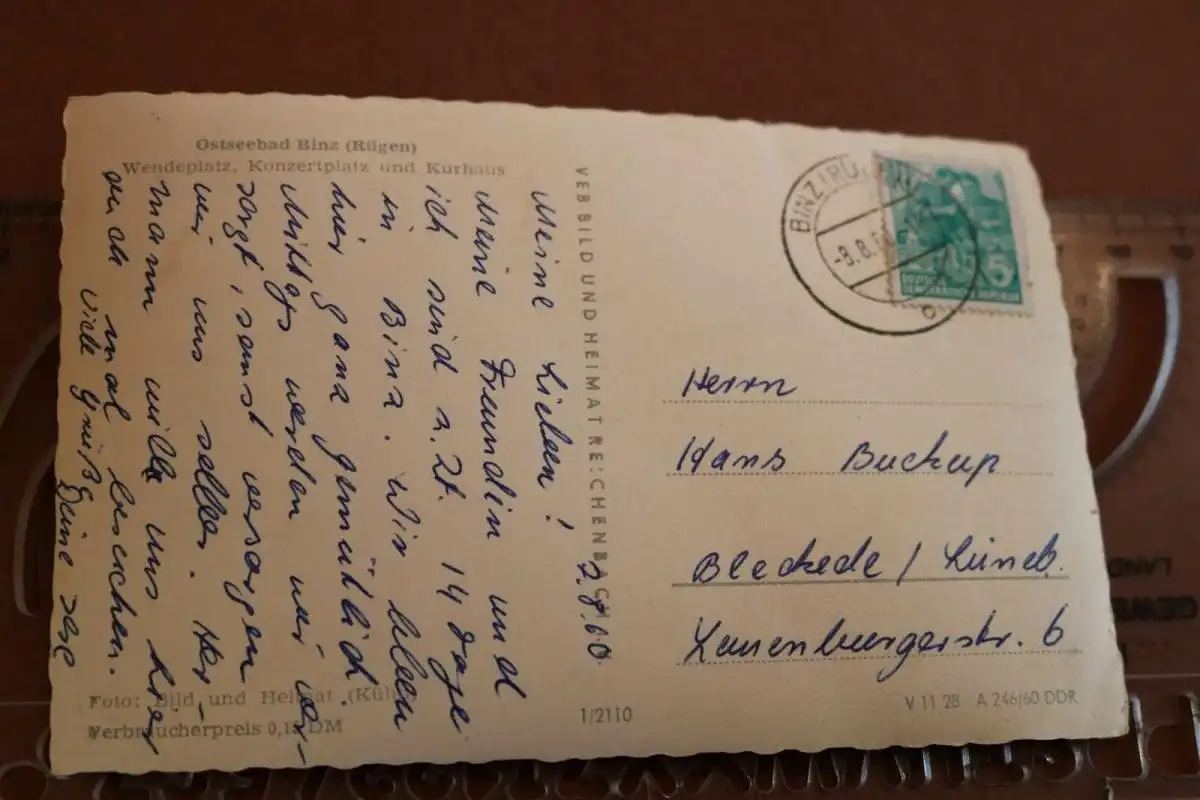 Ostseebad Binz (Rügen)
Wendeplatz, Konzertplatz und Kurhaus
Meine Lieben! 2.8.60
Meine Freundin und
ich sind z. Zt. 14 Tage
in Binz. Wir leben
hier ganz gemütlich.
Mittags werden wir ver-
sorgt, sonst versorgen
wir uns selber. Her-
mann will uns hier
auch mal besuchen.
Viele Grüße Deine
VEB BILD UND HEIMAT REICHENBACH I. V.
BINZ (RÜGEN)
-3.8.60
5
DEUTSCHE
DEMOKRATISCHE REPUBLIK
Herrn
Hans Buckup
Bleckede / Lüneb.
Lauenburgerstr. 6
Foto: Bild und Heimat
Verbraucherpreis 0,15 DM
1/2110
V 11 28 A 246/60 DDR
LAND
GEWE